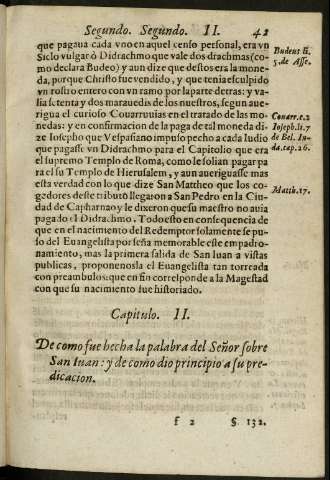 Segundo. Segundo. II. 42
que pagaua cada vno en aquel censo personal, era vn
Siclo vulgar ò Didrachmo que vale dos drachmas (co-
mo declara Budeo) y aun dize que destos era la mone-
da, porque Christo fue vendido, y que tenia esculpido
vn rostro entero con vn ramo por la parte detras: y va-
lia setenta y dos marauedis de los nuestros, segun aue-
rigua el curioso Couarruuias en el tratado de las mo-
nedas: y en confirmacion de la paga de tal moneda di-
ze Iosepho que Vespasiano impuso pecho a cada Iudio
que pagasse vn Didrachmo para el Capitolio que era
el supremo Templo de Roma, como le solian pagar pa
ra el su Templo de Hierusalem, y aun aueriguasse mas
esta verdad con lo que dize San Mattheo que los co-
gedores deste tributo llegaron a San Pedro en la Ciu-
dad de Capharnao y le dixeron que su maestro no auia
pagado el Didrachmo. Todo esto en consequencia de
que en el nacimiento del Redemptor solamente se pu-
so del Euangelista por seña memorable este empadro-
namiento, mas la primera salida de San Iuan a vistas
publicas, proponenosla el Euangelista tan torreada
con preambulos que en fin corresponde a la Magestad
con que su nacimiento fue historiado.
Budeus li.
5. de Asse.
Couarr. c. 2
Ioseph. li. 7
de Bel. Iu-
da. cap. 26.
Matth. 17.
Capitulo. II.
De como fue hecha la palabra del Señor sobre
San Iuan: y de como dio principio a su pre-
dicacion.
f 2 §. 132.